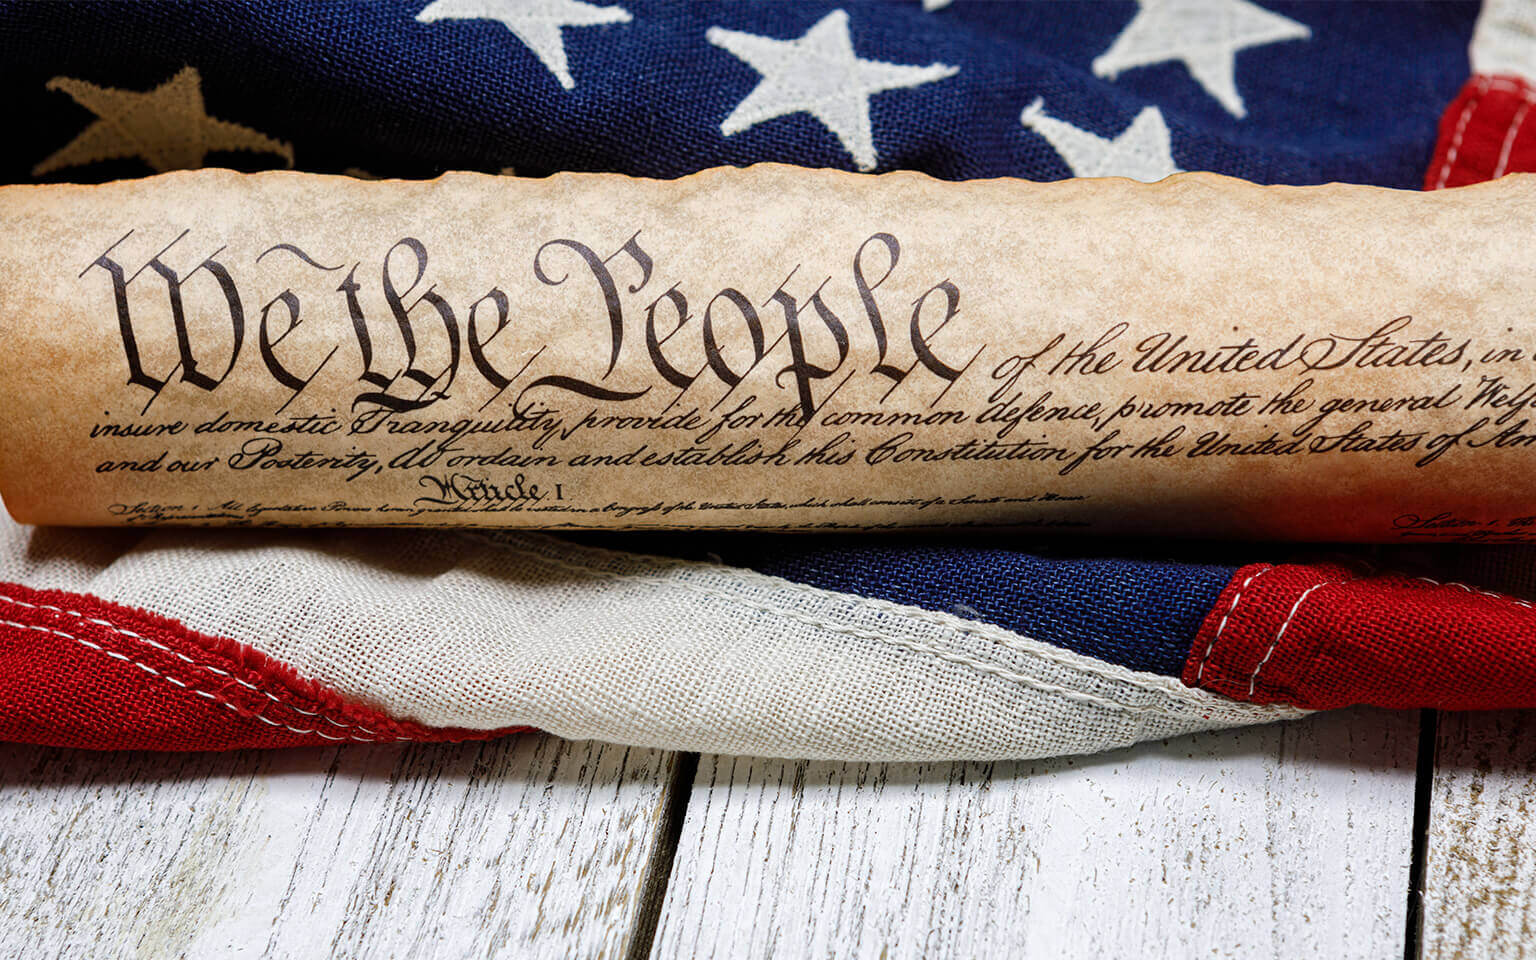 We the People of the United States, in
insure domestic Tranquility, provide for the common defence, promote the general Welf
and our Posterity, do ordain and establish this Constitution for the United States of Am
Article. I
Section 1 All legislative Powers herein granted shall be vested in a Congress of the United States, which shall consist of a Senate and House
of Representatives
Section. 1.